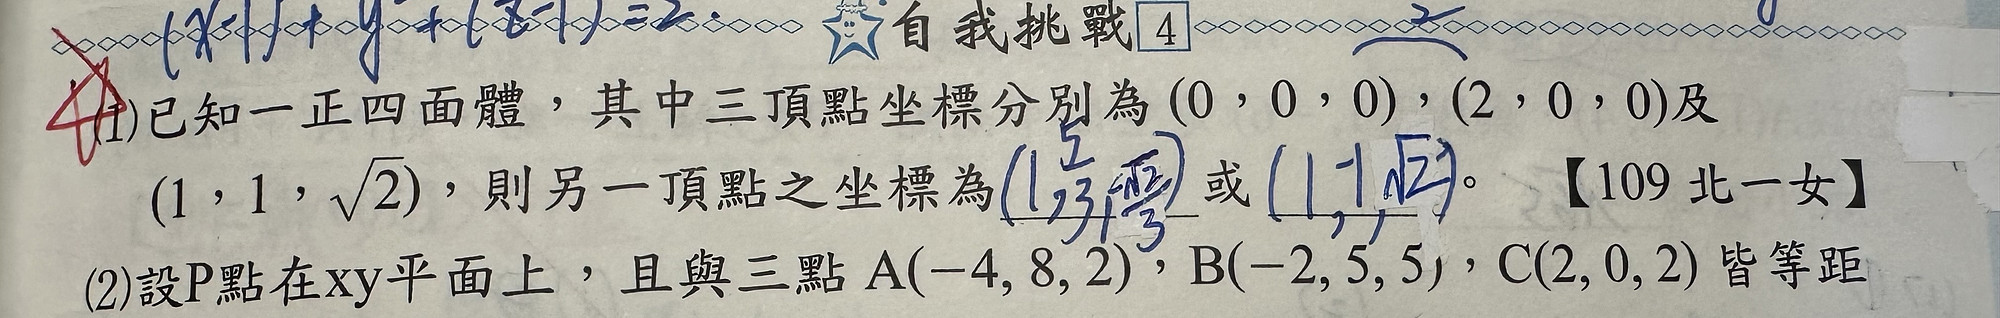 (x-1)²+y²+(z-1)²=2.
自我挑戰 4
2
(1)已知一正四面體，其中三頂點坐標分別為 (0，0，0)，(2，0，0)及
(1，1，√2)，則另一頂點之坐標為(1, 5/3, -√2/3) 或 (1, -1, √2)。 【109 北一女】
(2)設P點在xy平面上，且與三點 A(−4, 8, 2)，B(−2, 5, 5)，C(2, 0, 2) 皆等距